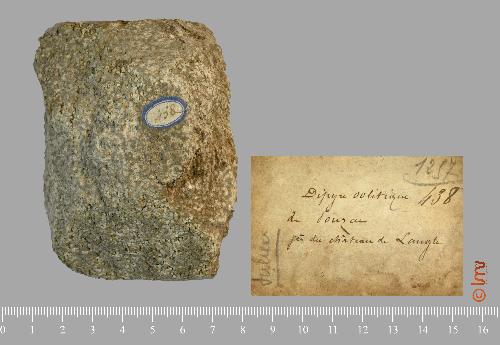 438
1257
438
Dipyre oolitique
de Pouzac
près du château de Langle
0 1 2 3 4 5 6 7 8 9 10 11 12 13 14 15 16